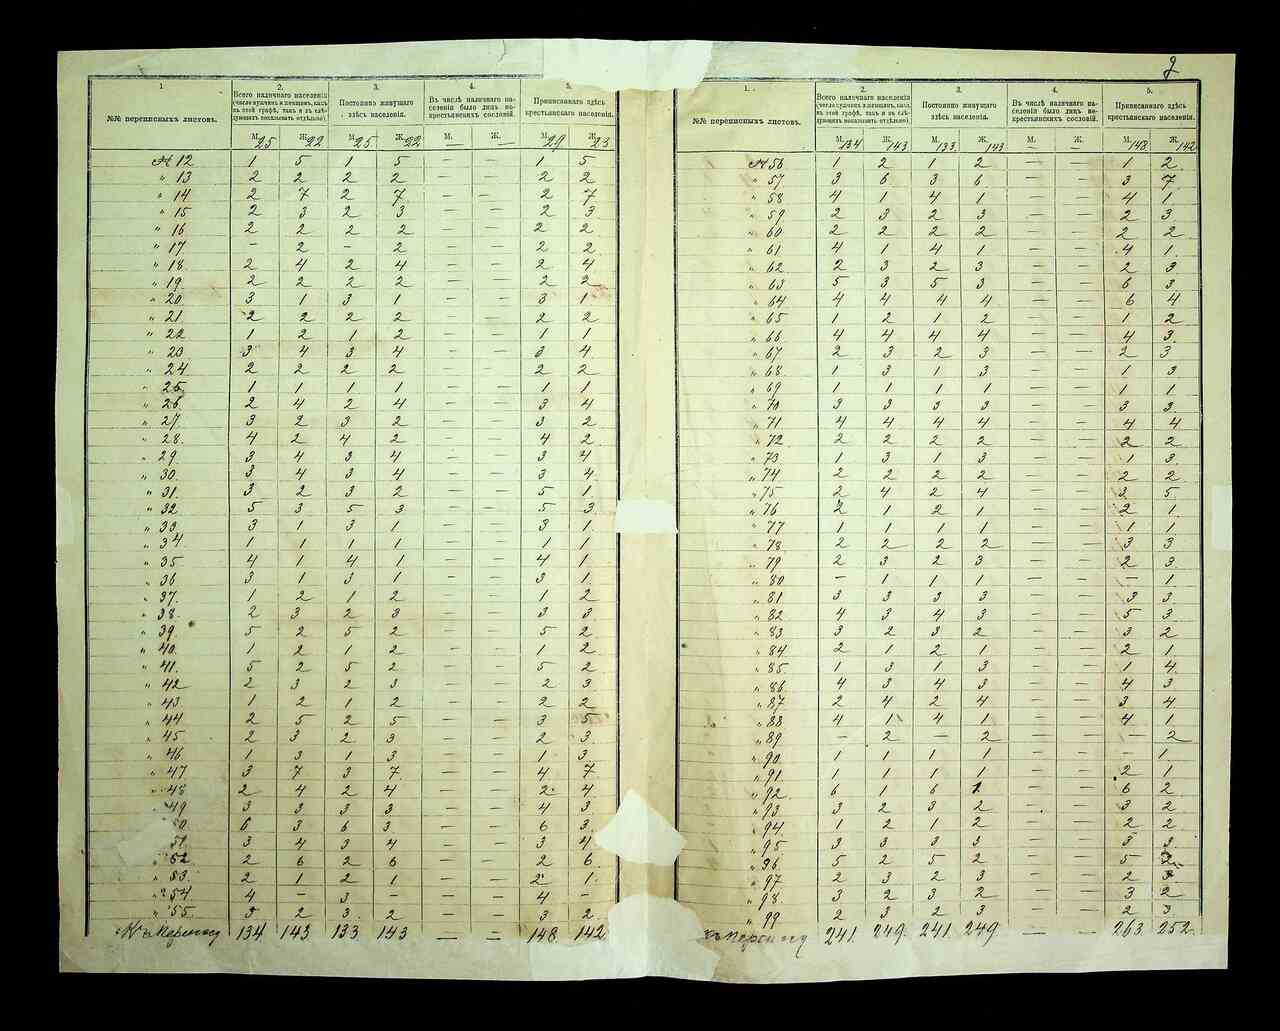 2
1.
2.
3.
4.
5.
№№ переписныхъ листовъ.
Всего наличнаго населенія
(число мужчинъ и женщинъ, какъ
въ этой графѣ, такъ и въ слѣ-
дующихъ показывать отдѣльно).
Постоянно живущаго
здѣсь населенія.
Въ числѣ наличнаго на-
селенія было лицъ не-
крестьянскихъ сословій.
Приписаннаго здѣсь
крестьянскаго населенія.
М. 25 Ж. 22 М. 25 Ж. 22 М. — Ж. — М. 29 Ж. 23
№ 12 1 5 1 5 1 5
" 13 2 2 2 2 — — 2 2
" 14 2 7 2 7 — — 2 7
" 15 2 3 2 3 — — 2 3
" 16 2 2 2 2 — — 2 2
" 17 – 2 – 2 — — 2 2
" 18 2 4 2 4 — — 2 4
" 19 2 2 2 2 — — 2 2
" 20 3 1 3 1 — — 3 1
" 21 2 2 2 2 — — 2 2
" 22 1 2 1 2 — — 1 1
" 23 3 4 3 4 — — 3 4
" 24 2 2 2 2 — — 2 2
" 25 1 1 1 1 — — 1 1
" 26 2 4 2 4 — — 3 4
" 27 3 2 3 2 — — 3 2
" 28 4 2 4 2 — — 4 2
" 29 3 4 3 4 — — 3 4
" 30 3 4 3 4 — — 3 4
" 31 3 2 3 2 — — 5 1
" 32 5 3 5 3 — — 5 3
" 33 3 1 3 1 — — 3 1
" 34 1 1 1 1 — — 1 1
" 35 4 1 4 1 — — 4 1
" 36 3 1 3 1 — — 3 1
" 37 1 2 1 2 — — 1 2
" 38 2 3 2 3 — — 3 3
" 39 5 2 5 2 — — 5 2
" 40 1 2 1 2 — — 1 2
" 41 5 2 5 2 — — 5 2
" 42 2 3 2 3 — — 2 3
" 43 1 2 1 2 — — 2 2
" 44 2 5 2 5 — — 3 5
" 45 2 3 2 3 — — 2 3
" 46 1 3 1 3 — — 1 3
" 47 3 7 3 7 — — 4 7
" 48 2 4 2 4 — — 2 4
" 49 3 3 3 3 — — 4 3
" 50 6 3 6 3 — — 6 3
" 51 3 4 3 4 — — 3 4
" 52 2 6 2 6 — — 2 6
" 53 2 1 2 1 — — 2 1
" 54 4 – 3 – — — 4 –
" 55 3 2 3 2 — — 3 2
134 143 133 143 — — 148 142
1.
2.
3.
4.
5.
№№ переписныхъ листовъ.
Всего наличнаго населенія
(число мужчинъ и женщинъ, какъ
въ этой графѣ, такъ и въ слѣ-
дующихъ показывать отдѣльно).
Постоянно живущаго
здѣсь населенія.
Въ числѣ наличнаго на-
селенія было лицъ не-
крестьянскихъ сословій.
Приписаннаго здѣсь
крестьянскаго населенія.
М. 134 Ж. 143 М. 133 Ж. 143 М. — Ж. — М. 148 Ж. 142
№ 56 1 2 1 2 — — 1 2
" 57 3 6 3 6 — — 3 7
" 58 4 1 4 1 — — 4 1
" 59 2 3 2 3 — — 2 3
" 60 2 2 2 2 — — 2 2
" 61 4 1 4 1 — — 4 1
" 62 2 3 2 3 — — 2 3
" 63 5 3 5 3 — — 6 3
" 64 4 4 4 4 — — 6 4
" 65 1 2 1 2 — — 1 2
" 66 4 4 4 4 — — 4 3
" 67 2 3 2 3 — — 2 3
" 68 1 3 1 3 — — 1 3
" 69 1 1 1 1 — — 1 1
" 70 3 3 3 3 — — 3 3
" 71 4 4 4 4 — — 4 4
" 72 2 2 2 2 — — 2 2
" 73 1 3 1 3 — — 1 3
" 74 2 2 2 2 — — 2 2
" 75 2 4 2 4 — — 3 5
" 76 2 1 2 1 — — 2 1
" 77 1 1 1 1 — — 1 1
" 78 2 2 2 2 — — 3 3
" 79 2 3 2 3 — — 2 3
" 80 – 1 1 1 — — – 1
" 81 3 3 3 3 — — 3 3
" 82 4 3 4 3 — — 5 3
" 83 3 2 3 2 — — 3 2
" 84 2 1 2 1 — — 2 1
" 85 1 3 1 3 — — 1 4
" 86 4 3 4 3 — — 4 3
" 87 2 4 2 4 — — 3 4
" 88 4 1 4 1 — — 4 1
" 89 – 2 – 2 — — – 2
" 90 1 1 1 1 — — – 1
" 91 1 1 1 1 — — 2 1
" 92 6 1 6 1 — — 6 2
" 93 3 2 3 2 — — 3 2
" 94 1 2 1 2 — — 2 2
" 95 3 3 3 3 — — 3 3
" 96 5 2 5 2 — — 5 2
" 97 2 3 2 3 — — 2 3
" 98 3 2 3 2 — — 3 2
" 99 2 3 2 3 — — 2 3
241 249 241 249 — — 263 252